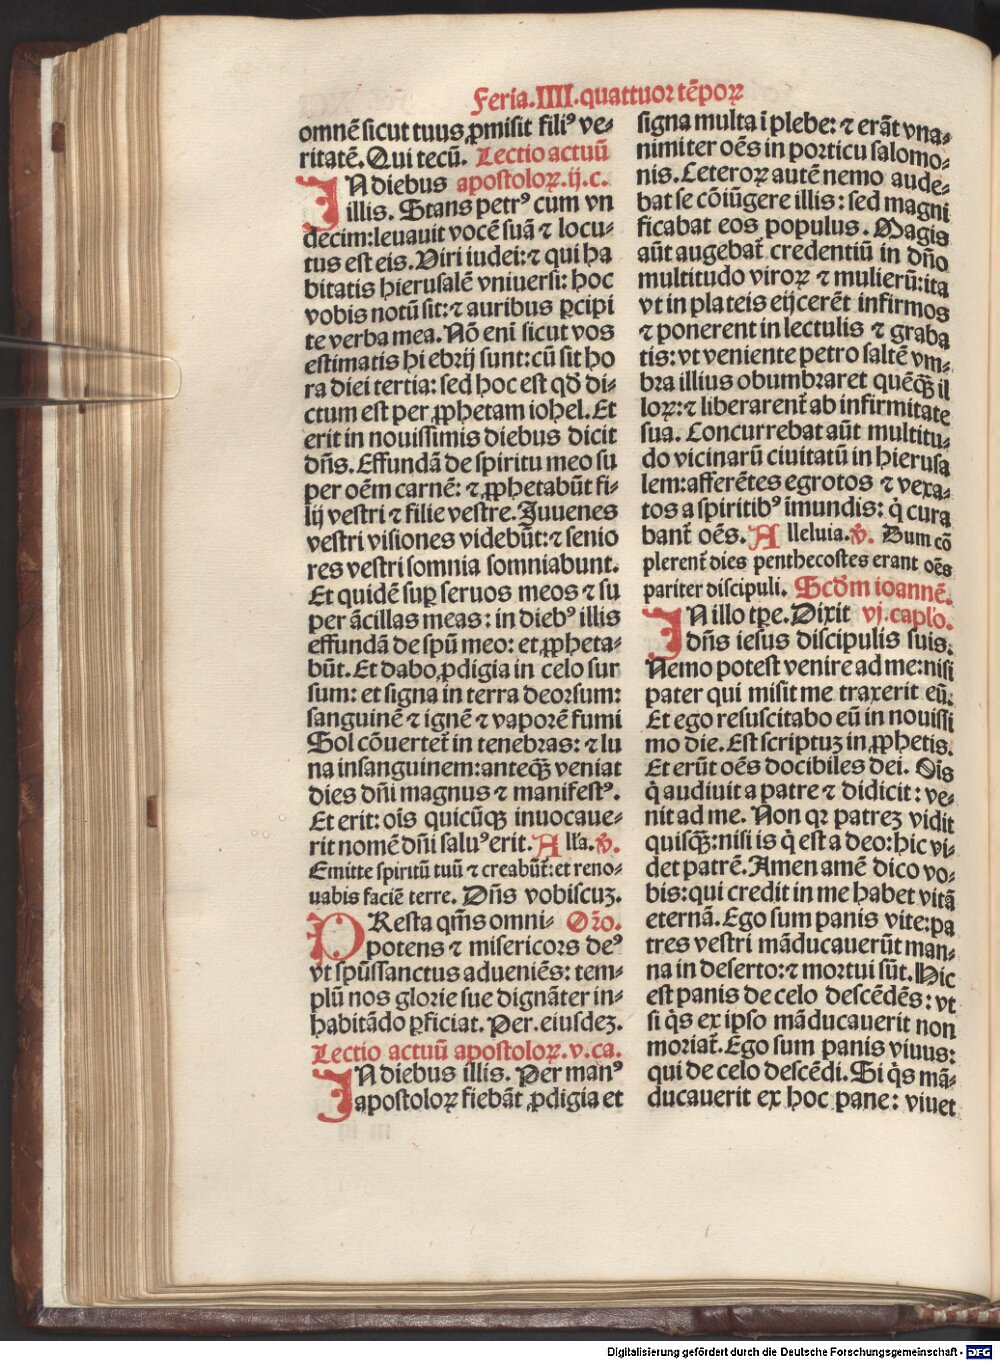 Feria.IIII.quattuor tēpoꝝ
omnē sicut tuus ꝓmisit filiꝰ ve-
ritatē. Qui tecū. Lectio actuū
IN diebus apostoloꝝ.ij.c.
illis. Stans petrꝰ cum vn
decim: leuauit vocē suā ⁊ locu-
tus est eis. Viri iudei: ⁊ qui ha
bitatis hierusalē vniuersi: hoc
vobis notū sit: ⁊ auribus ꝑcipi
te verba mea. Nō eni sicut vos
estimatis hi ebrij sunt: cū sit ho
ra diei tertia: sed hoc est qd̄ di-
ctum est per ꝓphetam iohel. Et
erit in nouissimis diebus dicit
dn̄s. Effundā de spiritu meo su
per oēm carnē: ⁊ ꝓphetabūt fi-
lij vestri ⁊ filie vestre. Iuuenes
vestri visiones videbūt: ⁊ senio
res vestri somnia somniabunt.
Et quidē suꝑ seruos meos ⁊ su
per ācillas meas: in diebꝰ illis
effundā de spū meo: et ꝓpheta-
būt. Et dabo ꝓdigia in celo sur
sum: et signa in terra deorsum:
sanguinē ⁊ ignē ⁊ vaporē fumi
Sol cōuertet̄ in tenebras: ⁊ lu
na in sanguinem: anteqꝫ̄ veniat
dies dn̄i magnus ⁊ manifestꝰ.
Et erit: ois̄ quicūqꝫ inuocaue-
rit nomē dn̄i saluꝰ erit. Alla. ꝟ.
Emitte spiritū tuū ⁊ creabūt̄: et reno-
uabis faciē terre. Dn̄s vobiscuꝫ.
PResta qm̄s omni- Oro.
potens ⁊ misericors deꝰ
vt spūssanctus adueniēs: tem-
plū nos glorie sue dignāter in-
habitādo ꝑficiat. Per. eiusdeꝫ.
Lectio actuū apostoloꝝ.v.ca.
IN diebus illis. Per manꝰ
apostoloꝝ fiebāt ꝓdigia et
signa multa ī plebe: ⁊ erāt vna-
nimiter oēs in porticu salomo-
nis. Ceteroꝝ autē nemo aude-
bat se cōiūgere illis: sed magni
ficabat eos populus. Magis
aūt augebat̄ credentiū in dn̄o
multitudo viroꝝ ⁊ mulierū: ita
vt in plateis eijcerēt infirmos
⁊ ponerent in lectulis ⁊ graba
tis: vt veniente petro saltē vm-
bra illius obumbraret quēqꝫ̄ il
loꝝ: ⁊ liberarent̄ ab infirmitate
sua. Concurrebat aūt multitu-
do vicinarū ciuitatū in hierusa
lem: afferētes egrotos ⁊ vexa-
tos a spiritibꝰ imundis: q̇ cura
bant̄ oēs. Alleluia. ꝟ. Dum cō
plerent̄ dies penthecostes erant oēs
pariter discipuli. Scd̄m ioannē.
IN illo tꝑe. Dixit vj.caplo.
dn̄s iesus discipulis suis.
Nemo potest venire ad me: nisi
pater qui misit me traxerit eū.
Et ego resuscitabo eū in nouissi
mo die. Est scriptuꝫ in ꝓphetis.
Et erūt oēs docibiles dei. Ois̄
q̇ audiuit a patre ⁊ didicit: ve-
nit ad me. Non qꝛ patreꝫ vidit
quisqꝫ̄: nisi is q̇ est a deo: hic vi-
det patrē. Amen amē dico vo-
bis: qui credit in me habet vitā
eternā. Ego sum panis vite: pa
tres vestri māducauerūt man-
na in deserto: ⁊ mortui sūt. Hic
est panis de celo descēdēs: vt
si q̇s ex ipso māducauerit non
moriat̄. Ego sum panis viuus:
qui de celo descēdi. Si q̇s mā-
ducauerit ex hoc pane: viuet
Digitalisierung gefördert durch die Deutsche Forschungsgemeinschaft - DFG